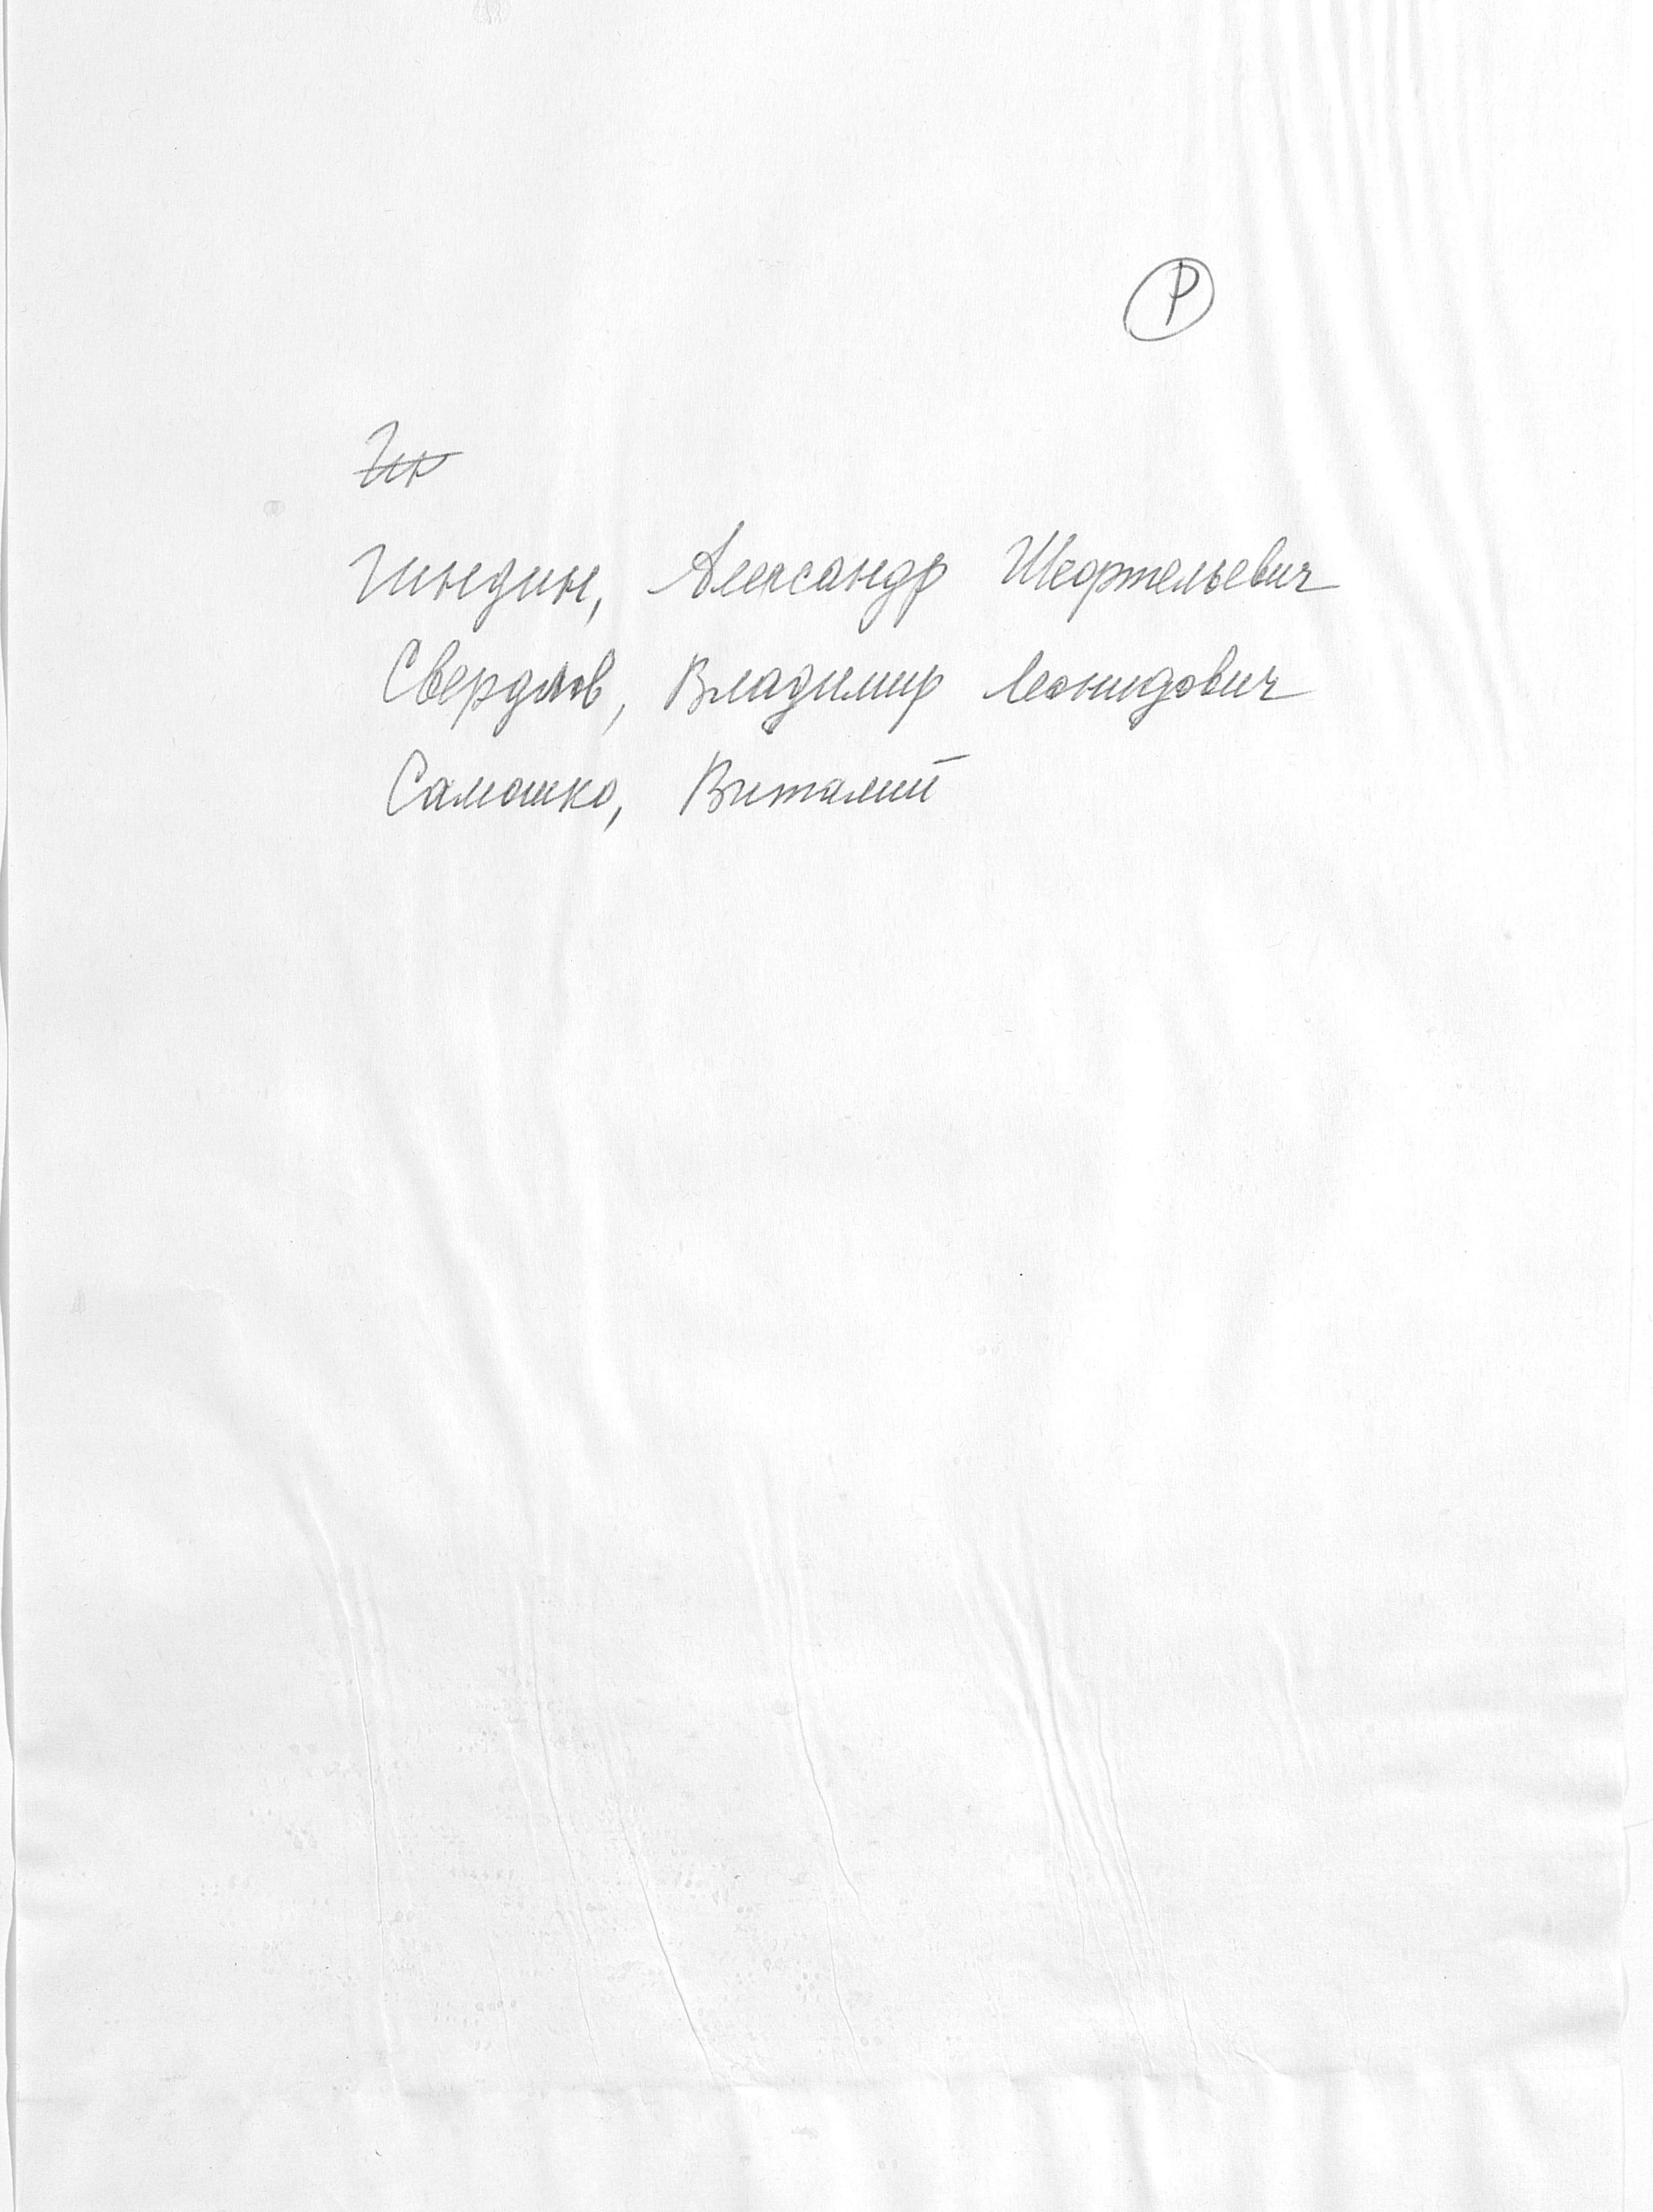 Р
Гиндин, Александр Шефтельевич
Свердлов, Владимир Леонидович
Самошко, Виталий